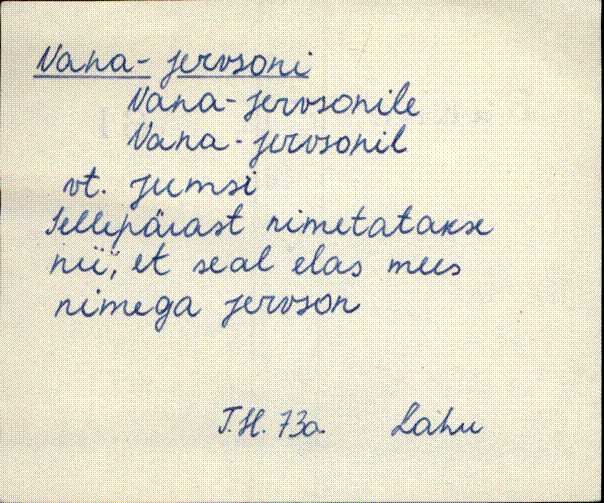 Vana-jervsoni
Vana-jervsonile
Vana-jervsonil
vt. jumsi
Sellepärast nimetatakse
nii, et seal elas mees
nimega jervson
T.H. 73a. Lahu